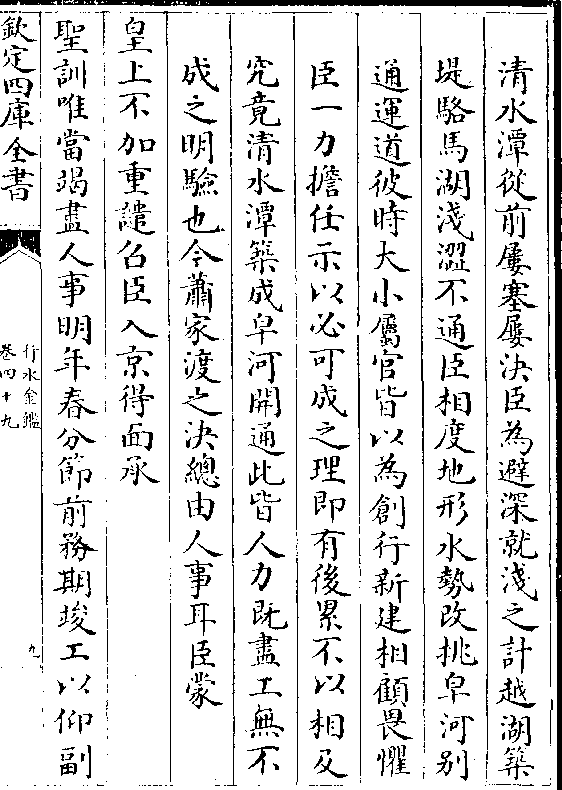 清水潭從前屢塞屢決臣為避深就淺之計越湖築
堤駱馬湖淺澀不通臣相度地形水勢改挑皁河别
通運道彼時大小屬官皆以為創行新建相顧畏懼
臣一力擔任示以必可成之理即有後累不以相及
究竟清水潭築成皁河開通此皆人力既盡工無不
成之明驗也今蕭家渡之決總由人事耳臣蒙
皇上不加重譴召臣入京得面承
聖訓唯當竭盡人事明年春分節前務期竣工以仰副
欽定四庫全書
行水金鑑
卷四十九
九